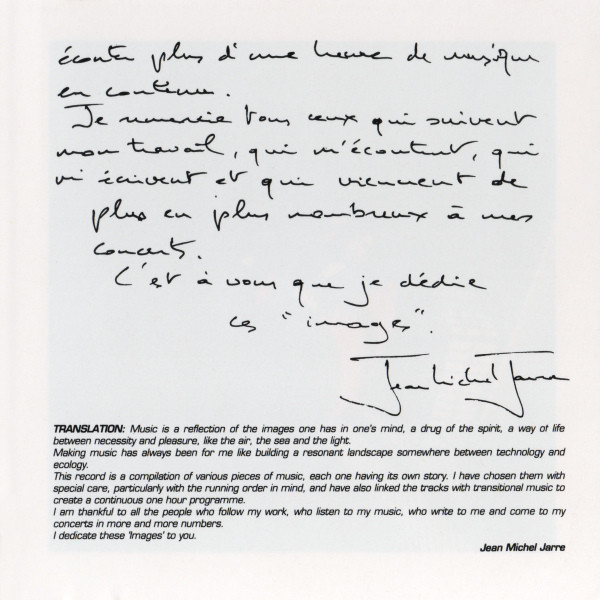 écouter plus d'une heure de musique
en continu.
Je remercie tous ceux qui suivent
mon travail, qui m'écoutent, qui
m'écrivent et qui viennent de
plus en plus nombreux à mes
concerts.
C'est à vous que je dédie
ces "images".
Jean Michel Jarre
TRANSLATION: Music is a reflection of the images one has in one's mind, a drug of the spirit, a way of life
between necessity and pleasure, like the air, the sea and the light.
Making music has always been for me like building a resonant landscape somewhere between technology and
ecology.
This record is a compilation of various pieces of music, each one having its own story. I have chosen them with
special care, particularly with the running order in mind, and have also linked the tracks with transitional music to
create a continuous one hour programme.
I am thankful to all the people who follow my work, who listen to my music, who write to me and come to my
concerts in more and more numbers.
I dedicate these 'Images' to you.
Jean Michel Jarre